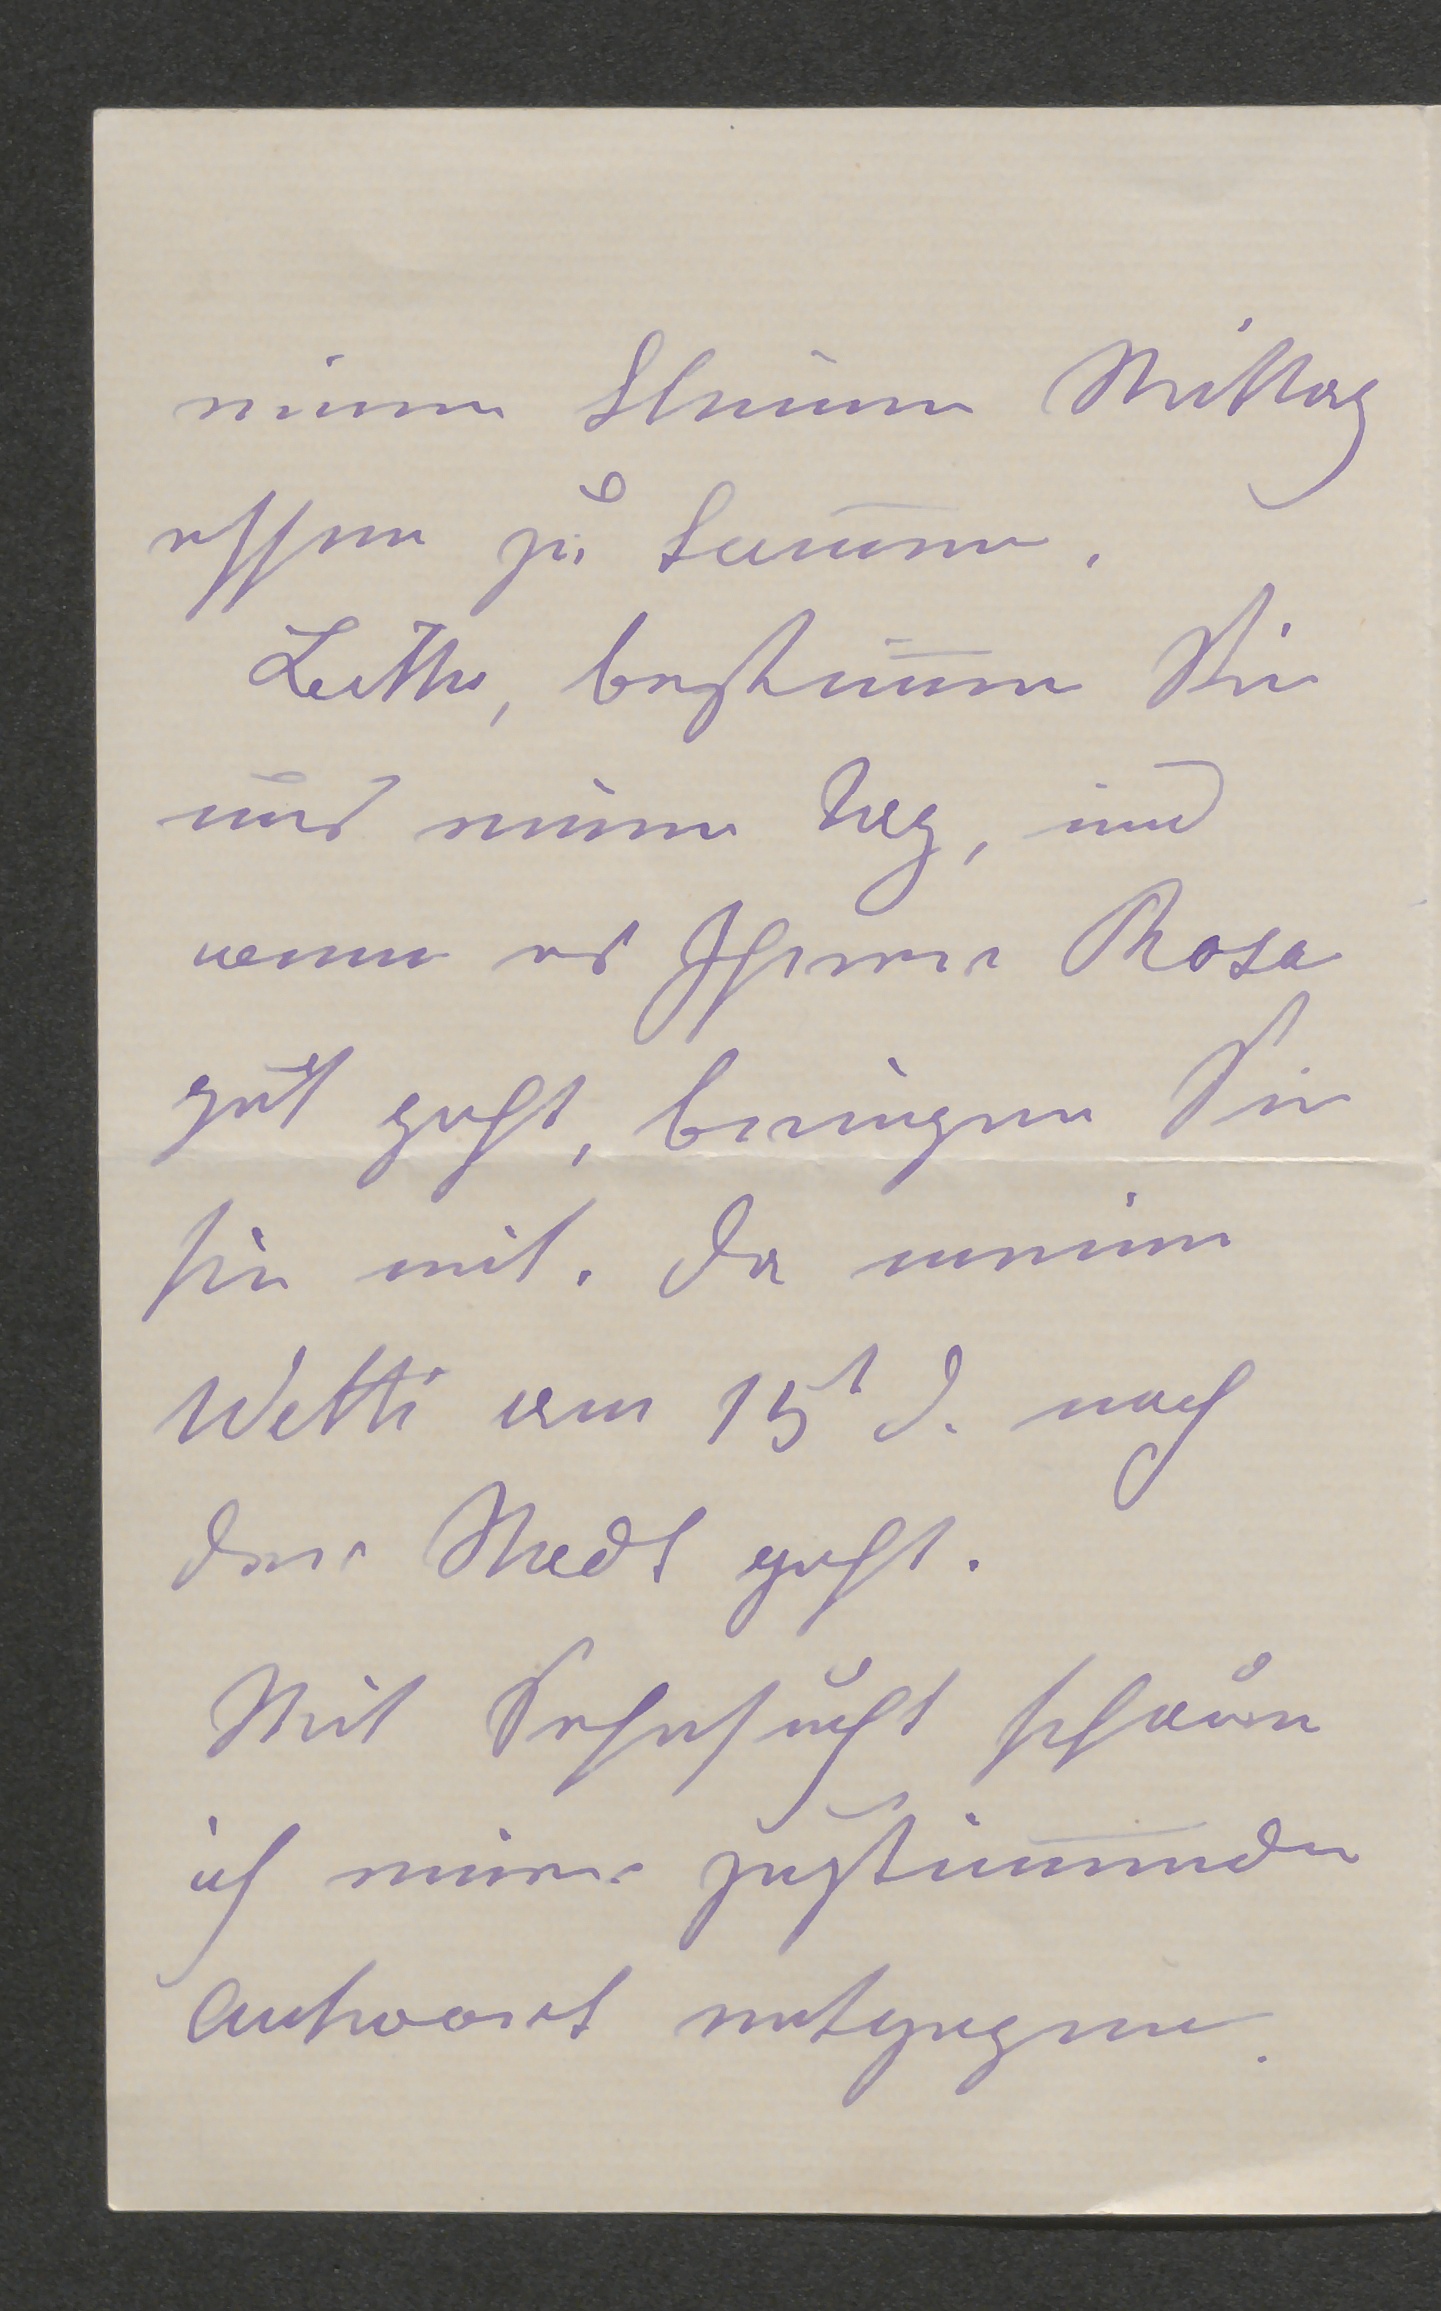 einem kleinen Mittag
essen zu kom̅en.
Bitte, bestim̅en Sie
uns einen Tag, und
wenn es Ihrer Rosa
gut geht, bringen Sie
sie mit. Da meine
Wetti am 15t d. nach
der Stadt geht.
Mit Sehnsucht schaue
ich einer zustim̅enden
Antwort entgegen.